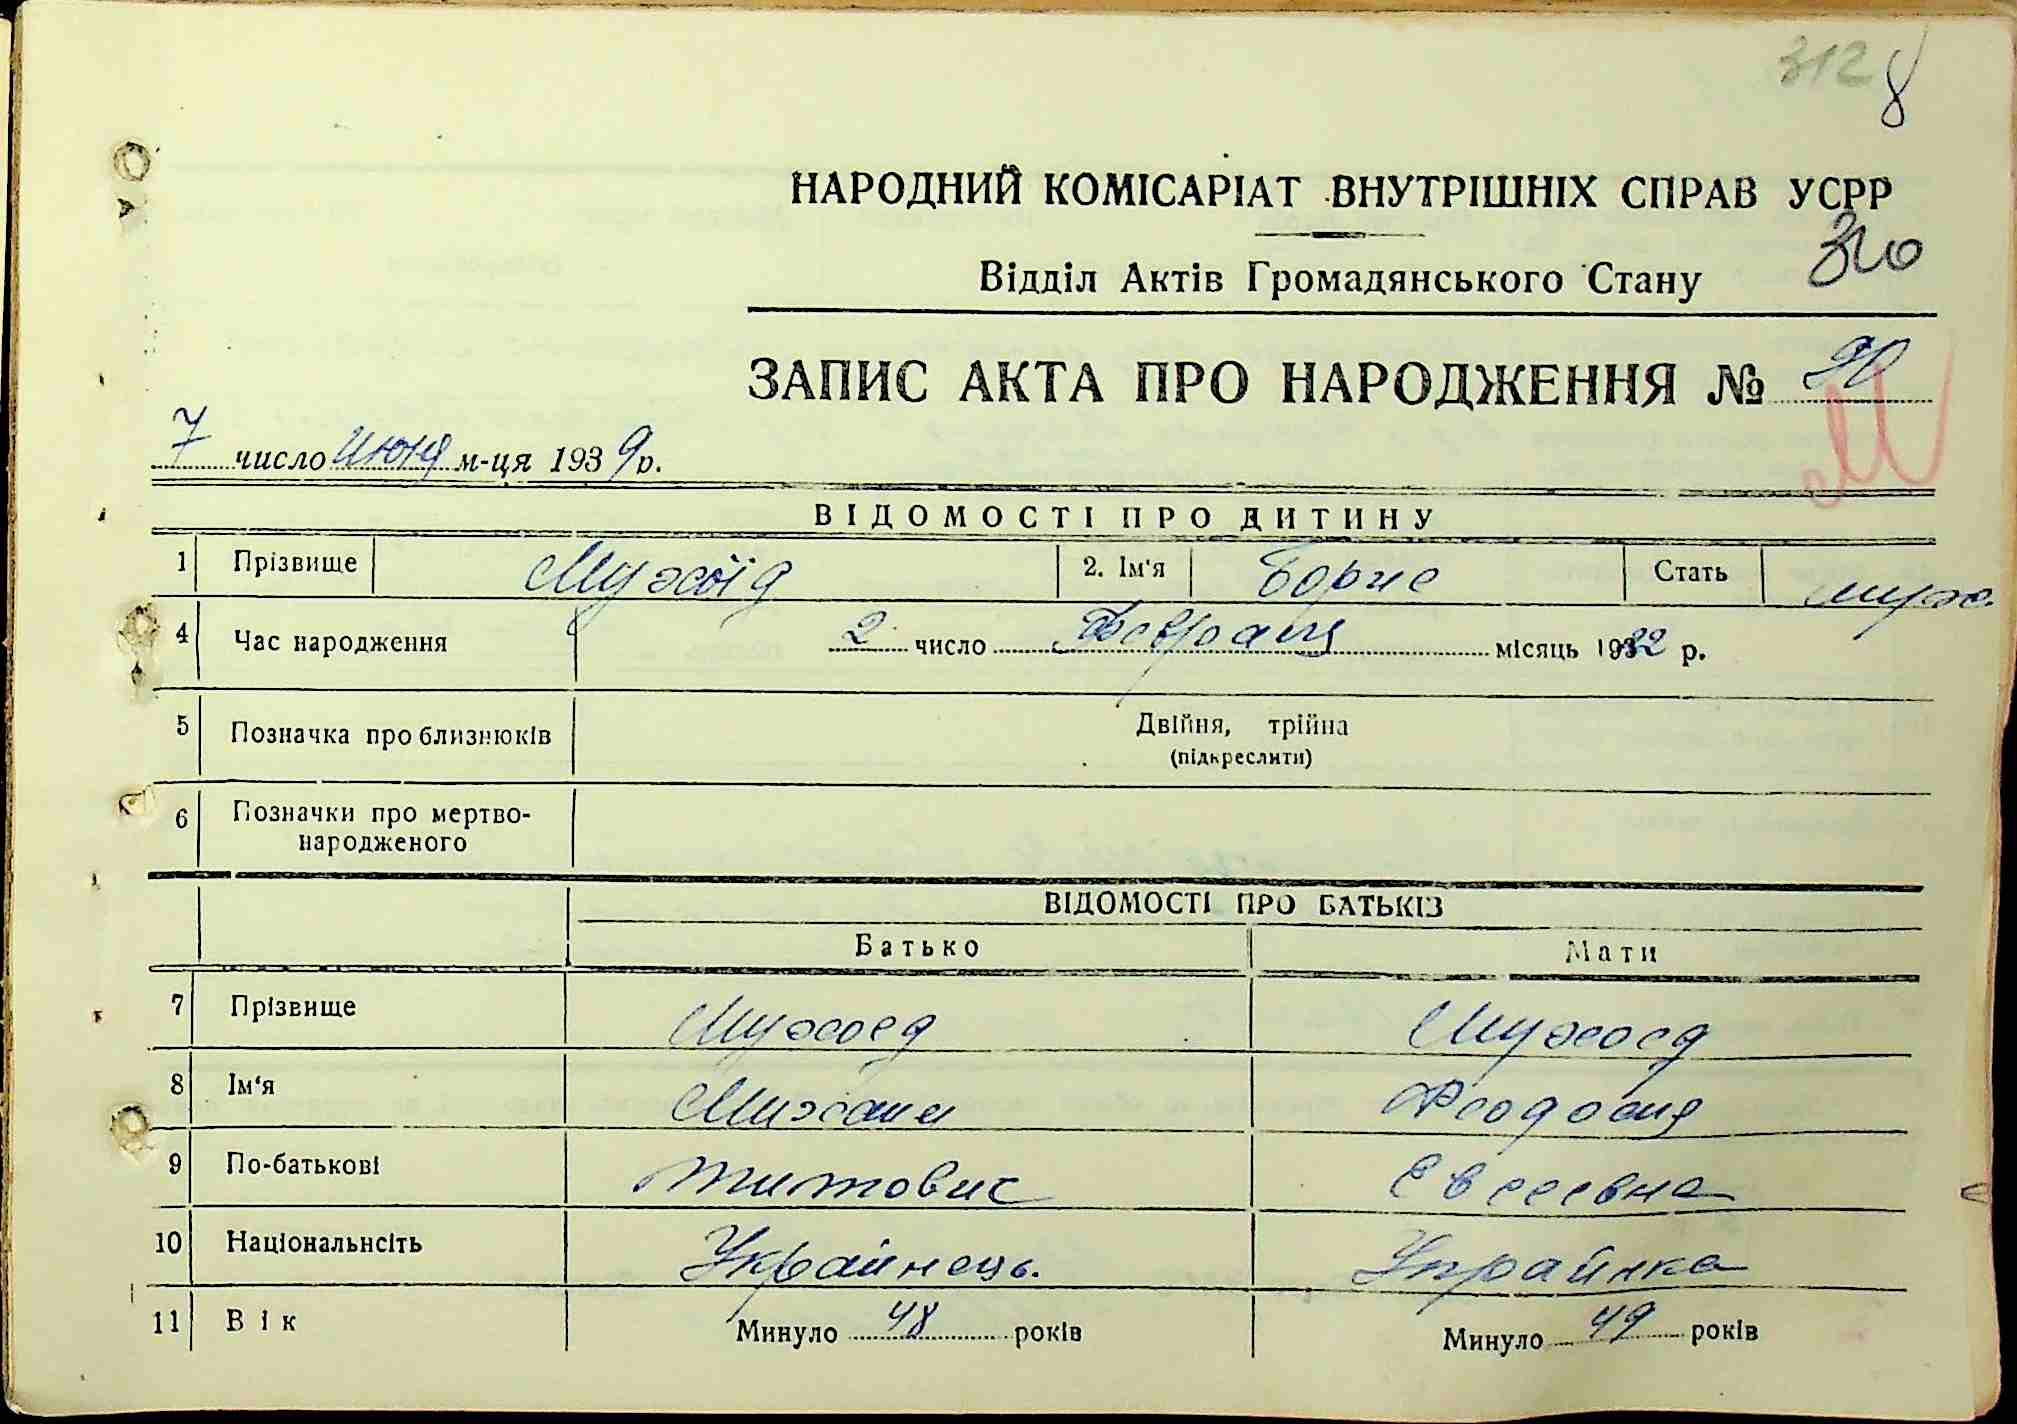 312 8
НАРОДНИЙ КОМІСАРІАТ ВНУТРІШНІХ СПРАВ УСРР
310
Відділ Актів Громадянського Стану
ЗАПИС АКТА ПРО НАРОДЖЕННЯ № 90
7 число июня м-ця 1939 р.
ВІДОМОСТІ ПРО ДИТИНУ
1 Прізвище Мухоїд 2. Ім'я Борис Стать муж.
4 Час народження 2 число Февраля місяць 1932 р.
5 Позначка про близнюків Двійня, трійна
(підкреслити)
6 Позначки про мертво-
народженого
ВІДОМОСТІ ПРО БАТЬКІВ
Батько Мати
7 Прізвище Мухоед Мухоед
8 Ім'я Михаил Феодосия
9 По-батькові Титович Евсеевна
10 Національнсіть Украйнець. Украйнка
11 Вік Минуло 48 років Минуло 49 років